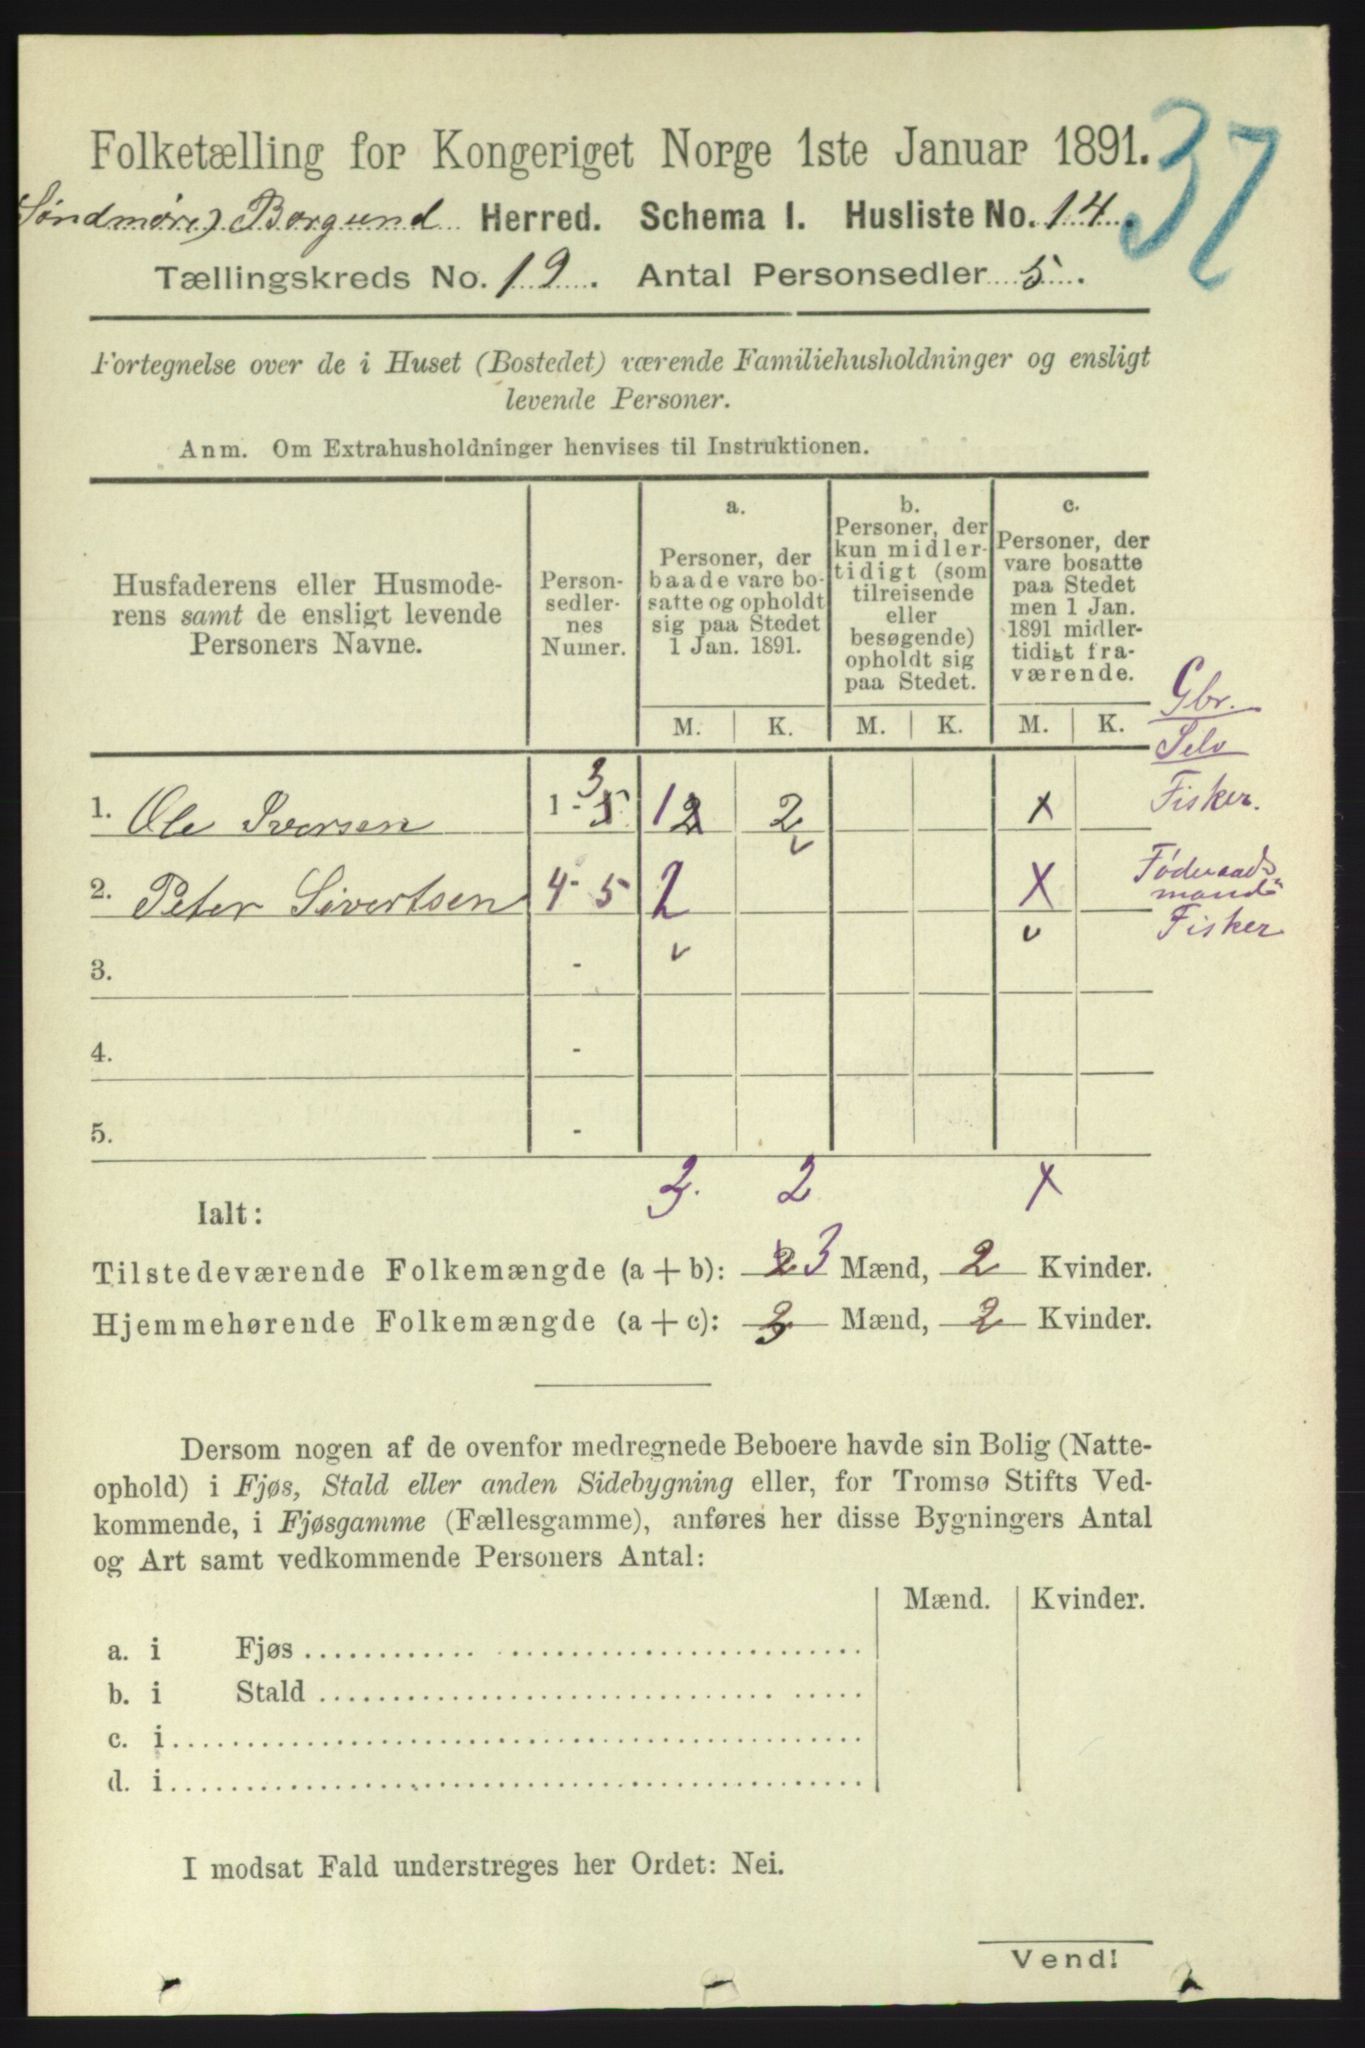 37
Folketælling for Kongeriget Norge 1ste Januar 1891.
(Søndmøre) Borgund Herred. Schema I. Husliste No. 14.
Tællingskreds No. 12. Antal Personsedler 5.
Fortegnelse over de i Huset (Bostedet) værende Familiehusholdninger og ensligt
levende Personer.
Anm. Om Extrahusholdninger henvises til Instruktionen.
Husfaderens eller Husmode-
rens samt de ensligt levende
Personers Navne.
Person-
sedler-
nes
Numer.
a.
Personer, der
baade vare bo-
satte og opholdt
sig paa Stedet
1 Jan. 1891.
b.
Personer, der
kun midler-
tidigt (som
tilreisende
eller
besøgende)
opholdt sig
paa Stedet.
c.
Personer, der
vare bosatte
paa Stedet
men 1 Jan.
1891 midler-
tidigt fra-
værende.
M. K. M. K. M. K.
Gbr.
Selv
Fisker.
1. Ole Iversen 1 - 3 5 1 2 2 x
v
2. Peter Sivertsen 4 - 5 2 x
Føderaads
mand
Fisker
v v
3. -
4. -
5. -
Ialt: 3. 2 x
Tilstedeværende Folkemængde (a + b): 2 3 Mænd, 2 Kvinder.
Hjemmehørende Folkemængde (a + c): 3 Mænd, 2 Kvinder.
Dersom nogen af de ovenfor medregnede Beboere havde sin Bolig (Natte-
ophold) i Fjøs, Stald eller anden Sidebygning eller, for Tromsø Stifts Ved-
kommende, i Fjøsgamme (Fællesgamme), anføres her disse Bygningers Antal
og Art samt vedkommende Personers Antal:
Mænd. Kvinder.
a. i Fjøs
b. i Stald
c. i
d. i
I modsat Fald understreges her Ordet: Nei.
Vend!